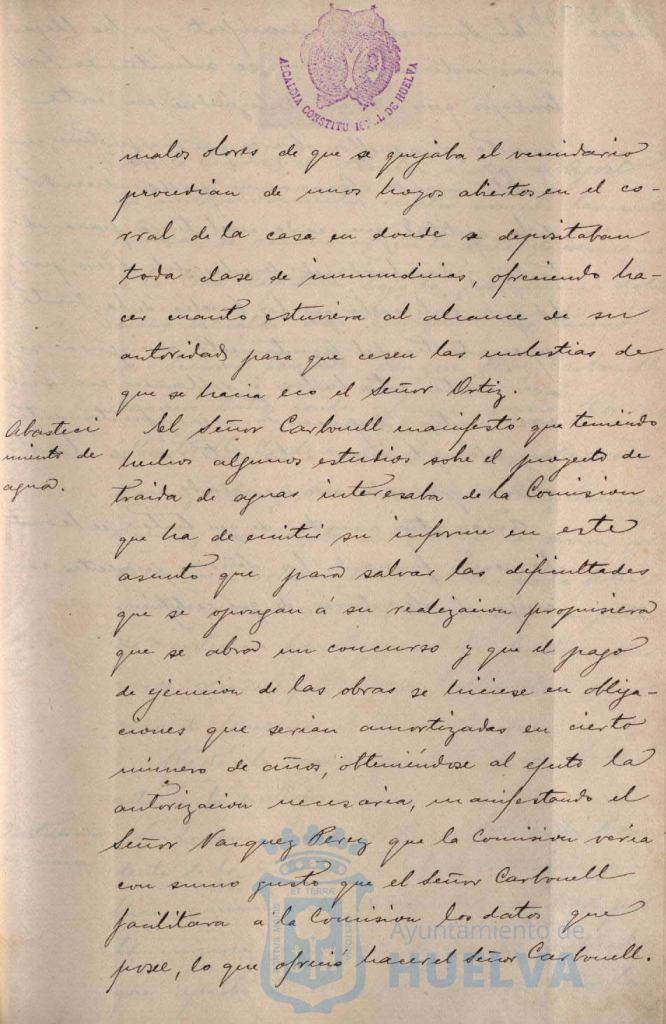 ALCALDIA CONSTITU    L DE HUELVA
malos olores de que se quejaba el vecindario
procedian de unos hoyos abiertos en el co-
rral de la casa en donde se depositaban
toda clase de inmundicias, ofreciendo ha-
cer cuanto estuviera al alcance de su
autoridad para que cesen las molestias de
que se hacia eco el Señor Ortiz.
Abasteci
miento de
agua.
El Señor Carbonell manifestó que teniendo
hechos algunos estudios sobre el proyecto de
traida de aguas interesaba de la Comision
que ha de emitir su informe en este
asunto que para salvar las dificultades
que se opongan á su realizacion propusiera
que se abra un concurso y que el pago
de ejecucion de las obras se hiciese en obliga-
ciones que serian amortizadas en cierto
número de años, obteniéndose al efecto la
autorizacion necesaria, manifestando el
Señor Vazquez Perez que la Comision veria
con sumo gusto que el Señor Carbonell
facilitara a la Comision los datos que
posee, lo que ofreció hacer el Señor Carbonell.
Ayuntamiento de
HUELVA